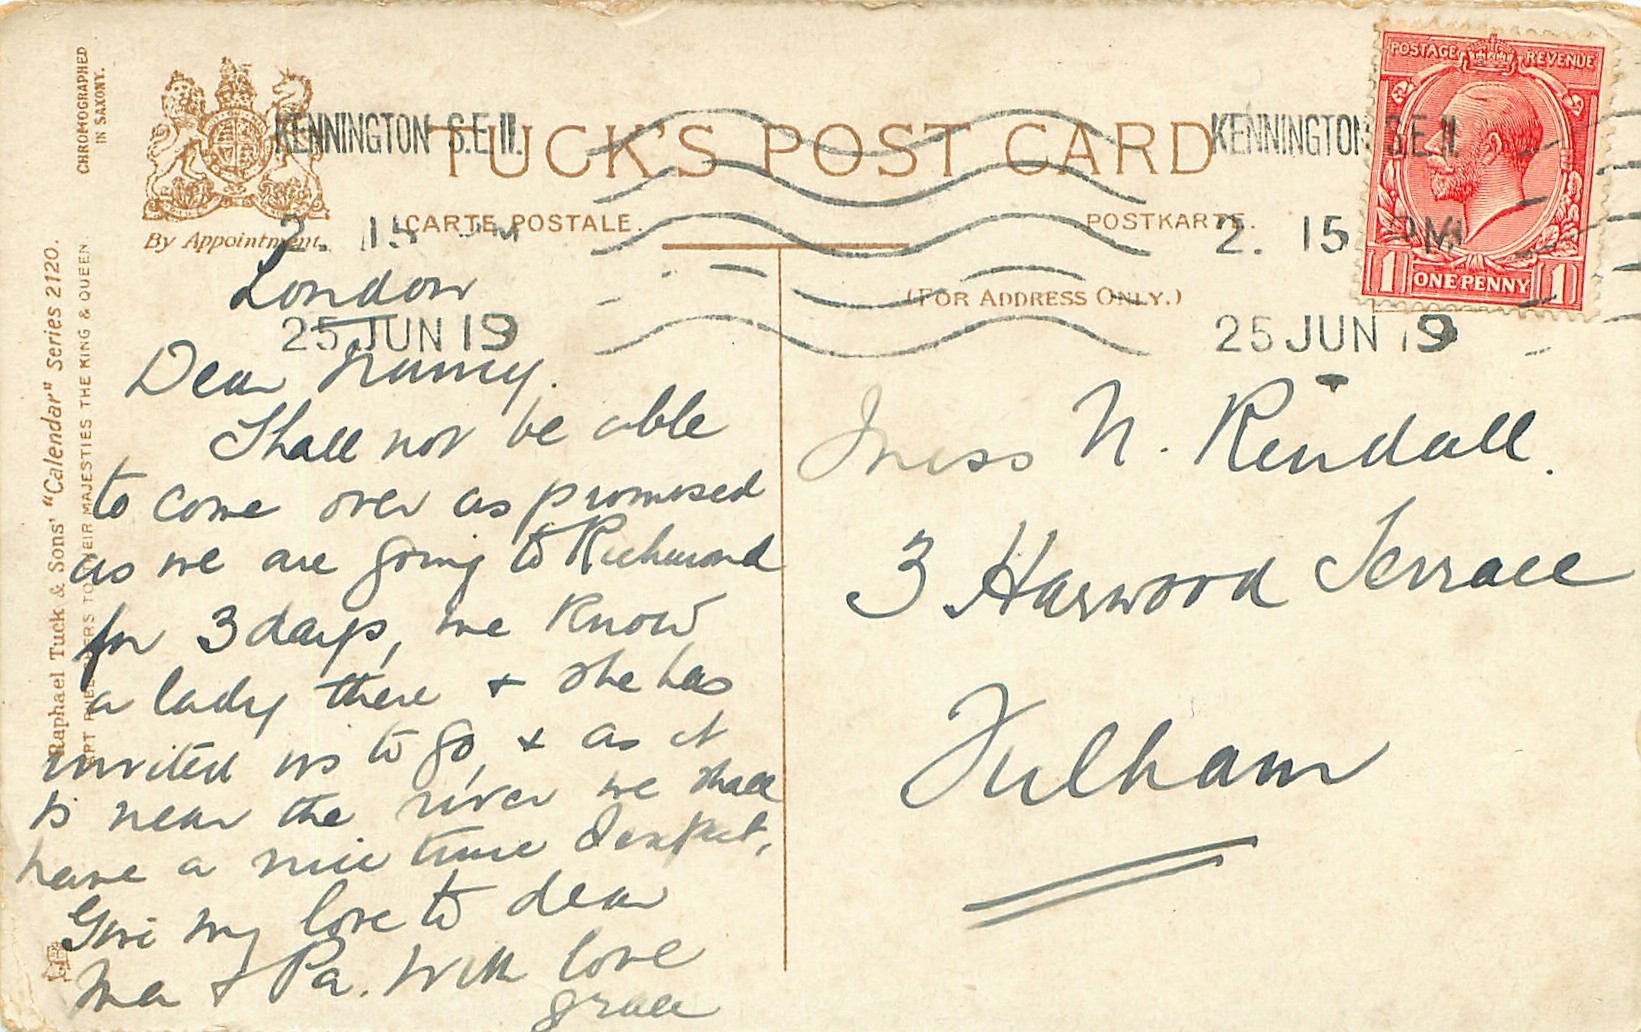 CHROMOGRAPHED
IN SAXONY.
Raphael Tuck & Sons' "Calendar" Series 2120.
TO THEIR MAJESTIES THE KING & QUEEN.
By Appointment.
TUCK'S POST CARD
CARTE POSTALE.
POSTKARTE.
(FOR ADDRESS ONLY.)
KENNINGTON S.E.11.
2. 15 PM
25 JUN 19
KENNINGTON S.E.11.
2. 15 PM
25 JUN 19
POSTAGE REVENUE
1 ONE PENNY 1
London
Dear Nancy.
Shall not be able
to come over as promised
as we are going to Richmond
for 3 days, we know
a lady there + she has
invited us to go, + as it
is near the river we shall
have a nice time I expect,
Give my love to dear
Ma + Pa. With love
Grace
Miss N. Rendall.
3 Harwood Terrace
Fulham